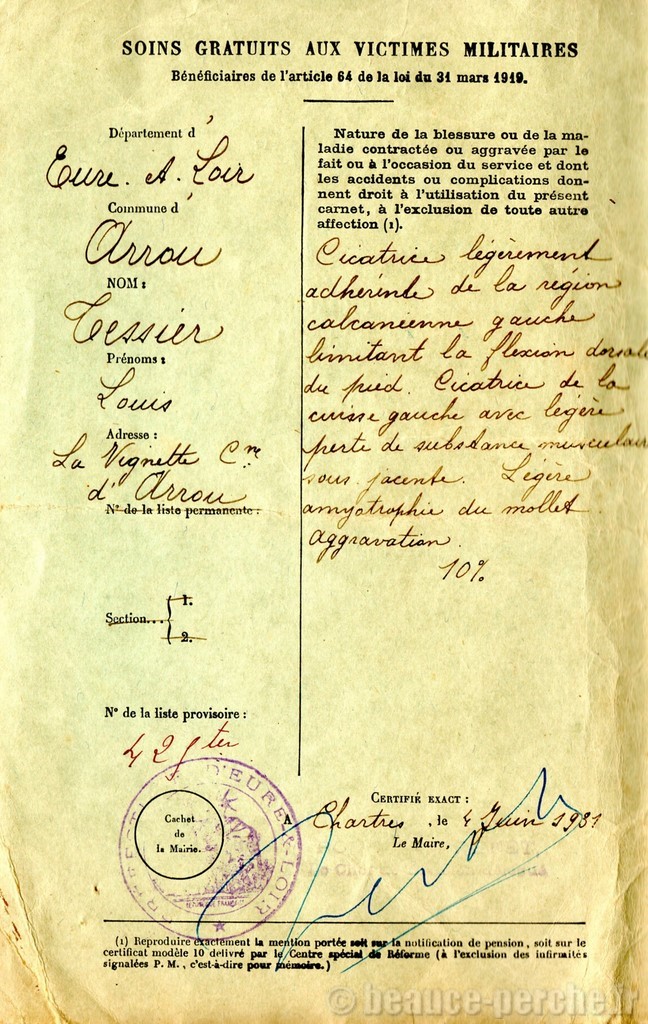 SOINS GRATUITS AUX VICTIMES MILITAIRES
Bénéficiaires de l'article 64 de la loi du 31 mars 1919.
Département d
Eure. et. Loir
Commune d
Arrou
NOM :
Tessier
Prénoms :
Louis
Adresse :
La Vignette Cne
d'Arrou
N° de la liste permanente :
Section...
1.
2.
N° de la liste provisoire :
ter
Nature de la blessure ou de la ma-
ladie contractée ou aggravée par le
fait ou à l'occasion du service et dont
les accidents ou complications don-
nent droit à l'utilisation du présent
carnet, à l'exclusion de toute autre
affection (1).
Cicatrice légèrement
adhérente de la région
calcanéenne gauche
limitant la flexion dorsale
du pied. Cicatrice de la
cuisse gauche avec légère
perte de substance musculaire
sous jacente. Légère
amyotrophie du mollet.
Aggravation.
10%
D'EURE & LOIR
Cachet
de
la Mairie.
CERTIFIÉ EXACT :
A Chartres, le 4 Juin 1931
Le Maire,
(1) Reproduire exactement la mention portée soit sur la notification de pension, soit sur le
certificat modèle 10 délivré par le Centre spécial de Réforme (à l'exclusion des infirmités
signalées P. M., c'est-à-dire pour mémoire.)
© beauce-perche.fr